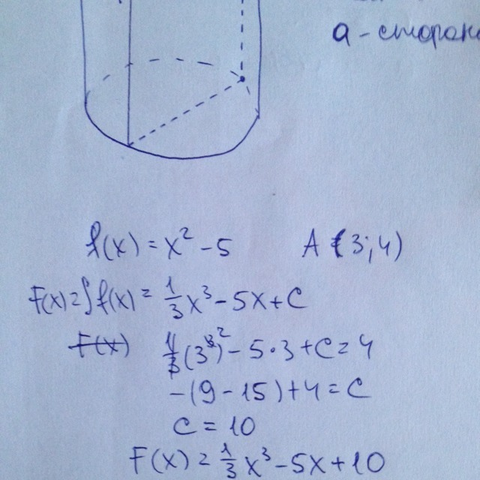 a - сторон
f(x) = x² - 5 A (3; 4)
F(x) = ∫ f(x) = 1/3 x³ - 5x + C
F(x) 1/3 (3³)² - 5·3 + C = 4
-(9 - 15) + 4 = C
C = 10
F(x) = 1/3 x³ - 5x + 10